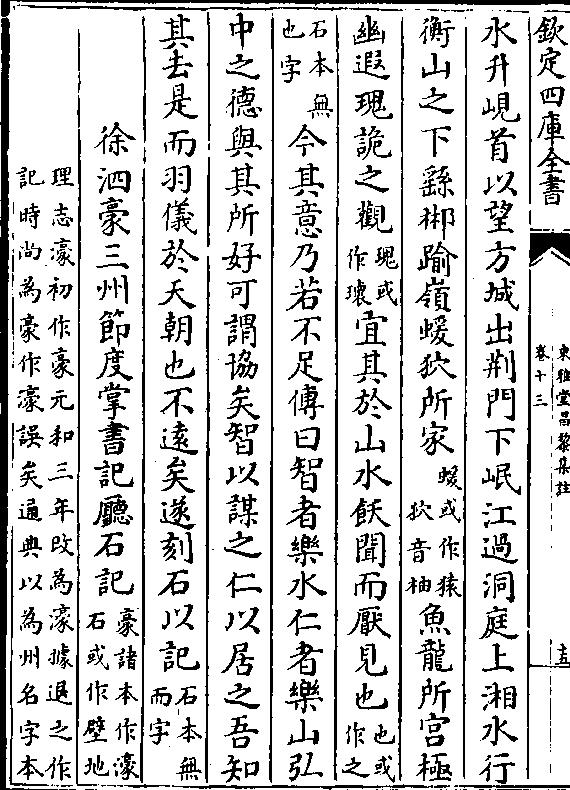 欽定四庫全書
東雅堂昌黎集註
卷十三
十五
水升峴首以望方城出荆門下岷江過洞庭上湘水行
衡山之下繇郴踰嶺蝯狖所家蝯或作猿狖音柚魚龍所宫極
幽遐瑰詭之觀瑰或作瓌宜其於山水飫聞而厭見也也或作之
石本無也字今其意乃若不足傳曰智者樂水仁者樂山弘
中之德與其所好可謂協矣智以謀之仁以居之吾知
其去是而羽儀於天朝也不遠矣遂刻石以記石本無而字
徐泗豪三州節度掌書記廳石記豪諸本作濠石或作壁地
理志濠初作豪元和三年改為濠據退之作
記時尚為豪作濠誤矣通典以為州名字本